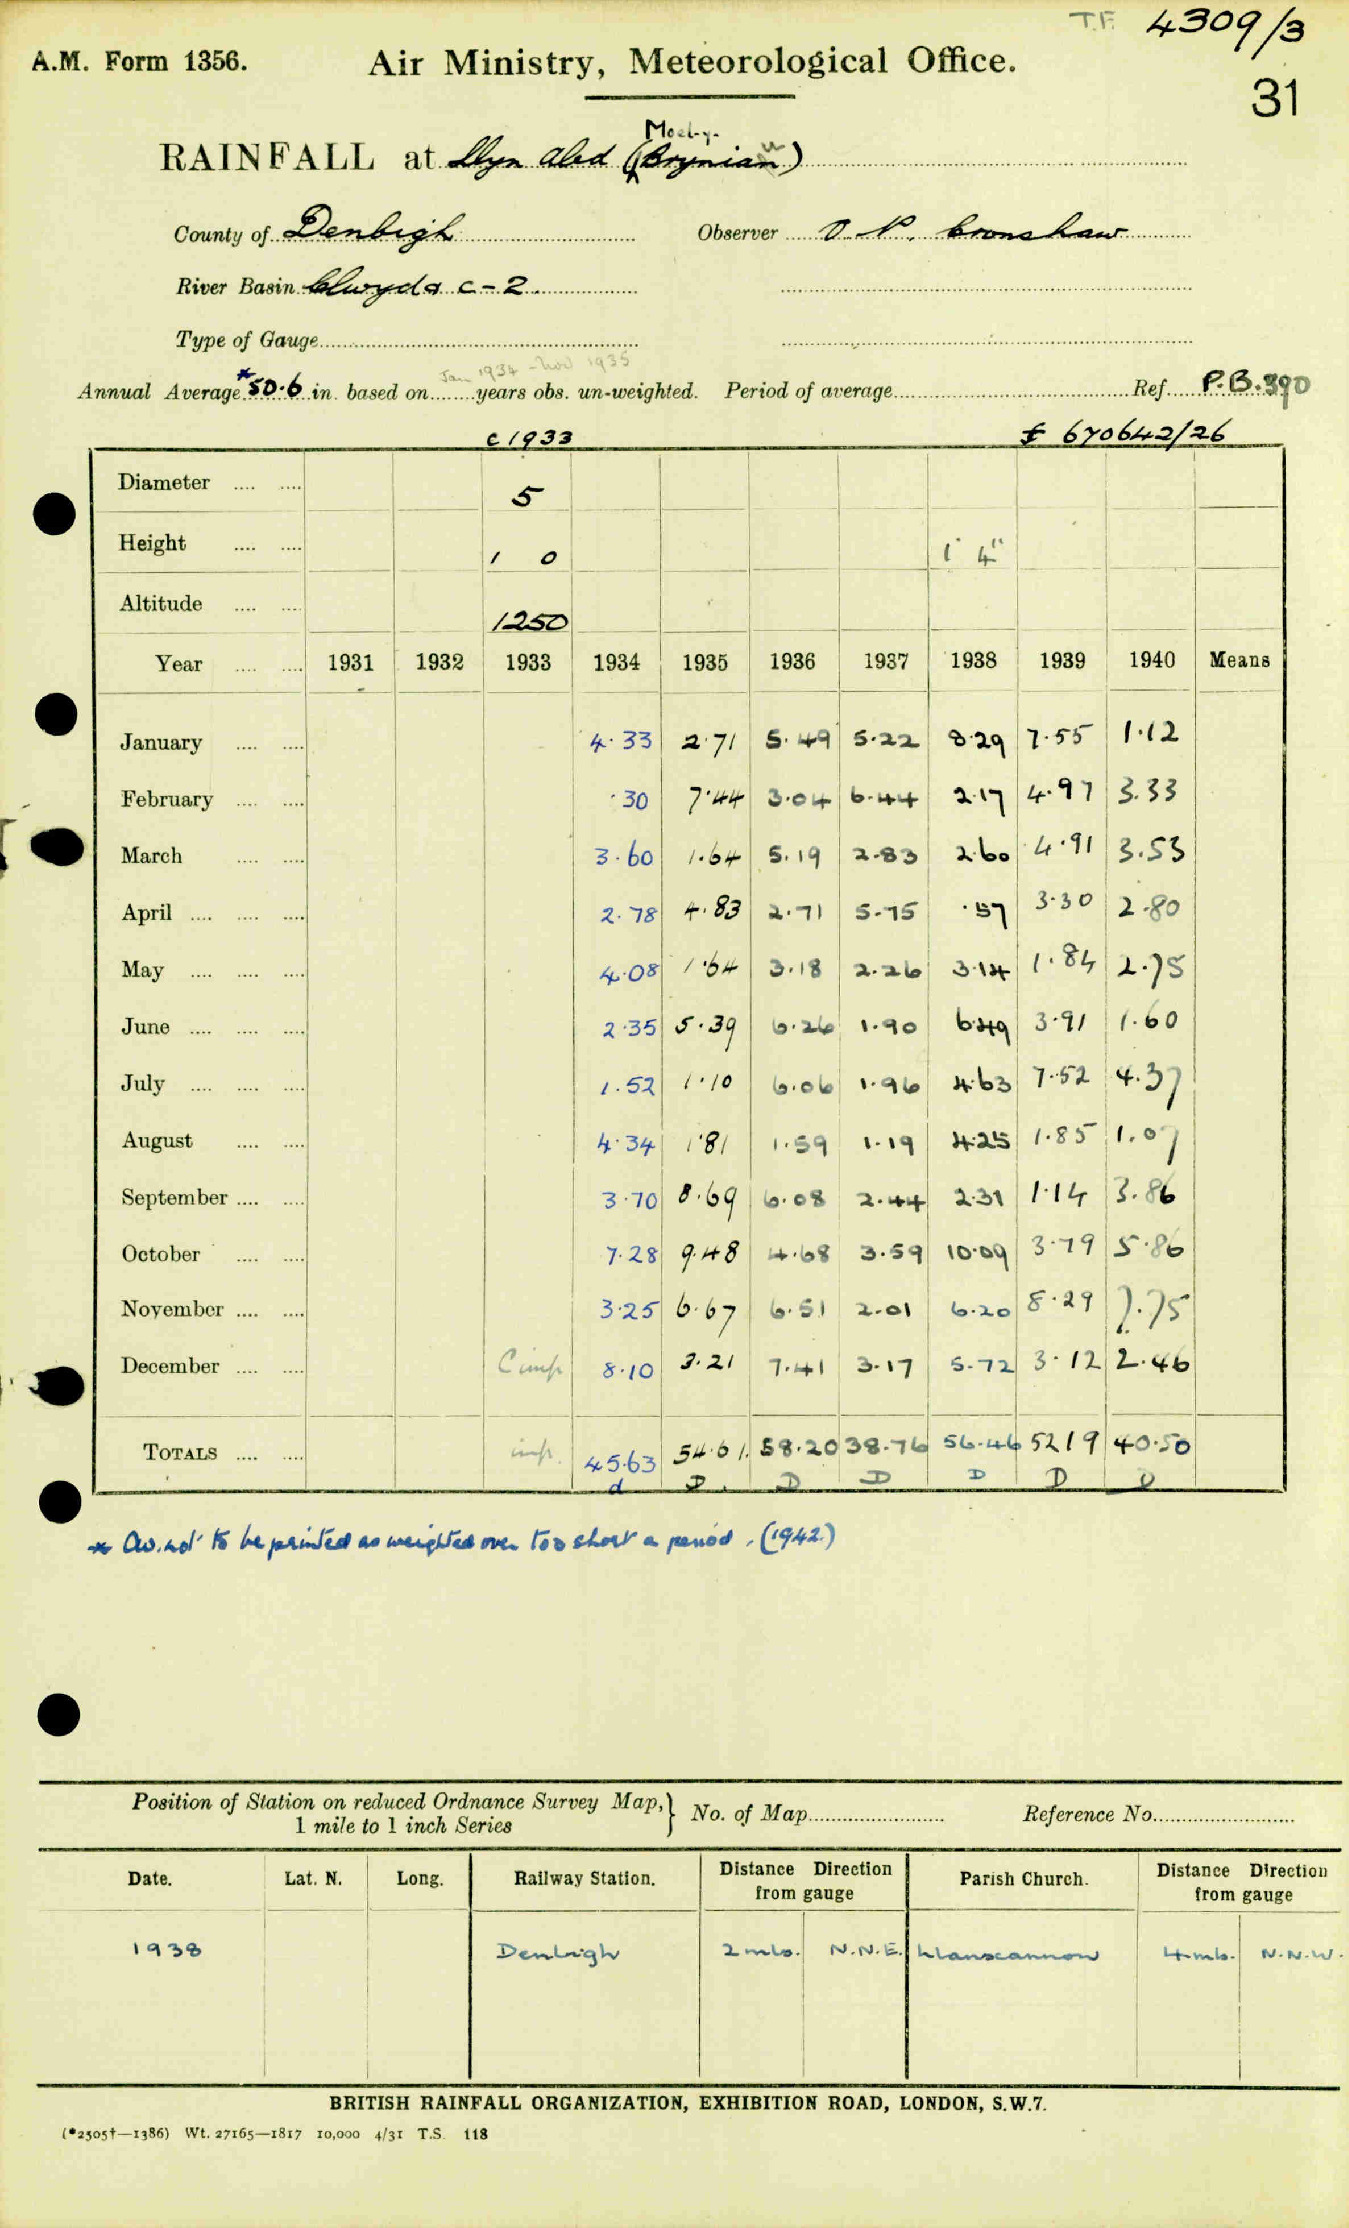 T.F. 4309/3
A.M. Form 1356. Air Ministry, Meteorological Office.
31
Moel-y-
RAINFALL at Llyn Aled (Brynian)
County of Denbigh Observer O. P. Cronshaw
River Basin Clwyd & C-2.
Type of Gauge
Jan 1934 - Nov 1935
Annual Average *50.6 in. based on years obs. un-weighted. Period of average Ref. P.B.390
c 1933 £ 670642/26
Diameter 5
Height 1 0 1' 4"
Altitude 1250
Year 1931 1932 1933 1934 1935 1936 1937 1938 1939 1940 Means
January 4.33 2.71 5.49 5.22 8.29 7.55 1.12
February .30 7.44 3.04 6.44 2.17 4.97 3.33
March 3.60 1.64 5.19 2.83 2.60 4.91 3.53
April 2.78 4.83 2.71 5.75 .57 3.30 2.80
May 4.08 1.64 3.18 2.26 3.14 1.84 2.75
June 2.35 5.39 6.26 1.90 6.49 3.91 1.60
July 1.52 1.10 6.06 1.96 4.63 7.52 4.37
August 4.34 1.81 1.59 1.19 4.25 1.85 1.07
September 3.70 8.69 6.08 2.44 2.31 1.14 3.86
October 7.28 9.48 4.68 3.59 10.09 3.79 5.86
November 3.25 6.67 6.51 2.01 6.20 8.29 7.75
December Cimp 8.10 3.21 7.41 3.17 5.72 3.12 2.46
TOTALS imp. 45.63 54.61. 58.20 38.76 56.46 5219 40.50
d D. D D D D D
* Av. not to be printed as weighted over too short a period. (1942)
Position of Station on reduced Ordnance Survey Map,} No. of Map Reference No.
1 mile to 1 inch Series
Date. Lat. N. Long. Railway Station. Distance Direction from gauge Parish Church. Distance Direction from gauge
1938 Denbigh 2 mls. N.N.E. Llanscannow 4 mls. N.N.W.
BRITISH RAINFALL ORGANIZATION, EXHIBITION ROAD, LONDON, S.W.7.
(*2505†—1386) Wt. 27165—1817 10,000 4/31 T.S. 118